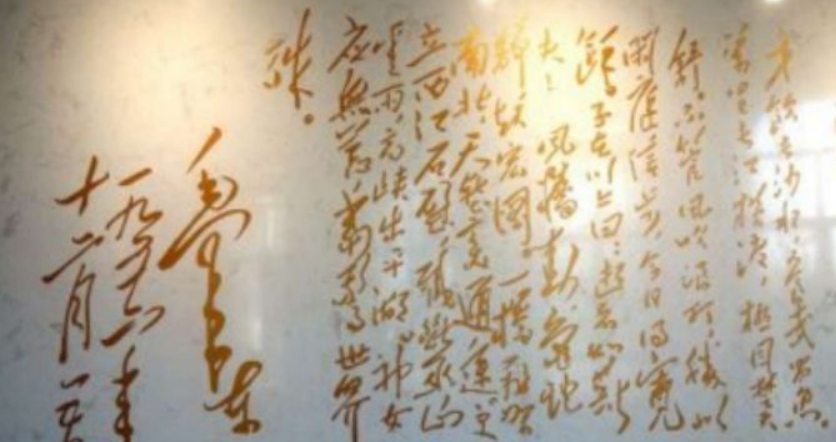 才饮长沙水，又食武昌鱼。
万里长江横渡，极目楚天
舒。不管风吹浪打，胜似
闲庭信步，今日得宽
馀。子在川上曰：逝者如斯
夫！风樯动，龟蛇
静，起宏图。一桥飞架
南北，天堑变通途。更
立西江石壁，截断巫山
云雨，高峡出平湖。神女
应无恙，当惊世界
殊。
毛泽东
一九五六年
十二月五